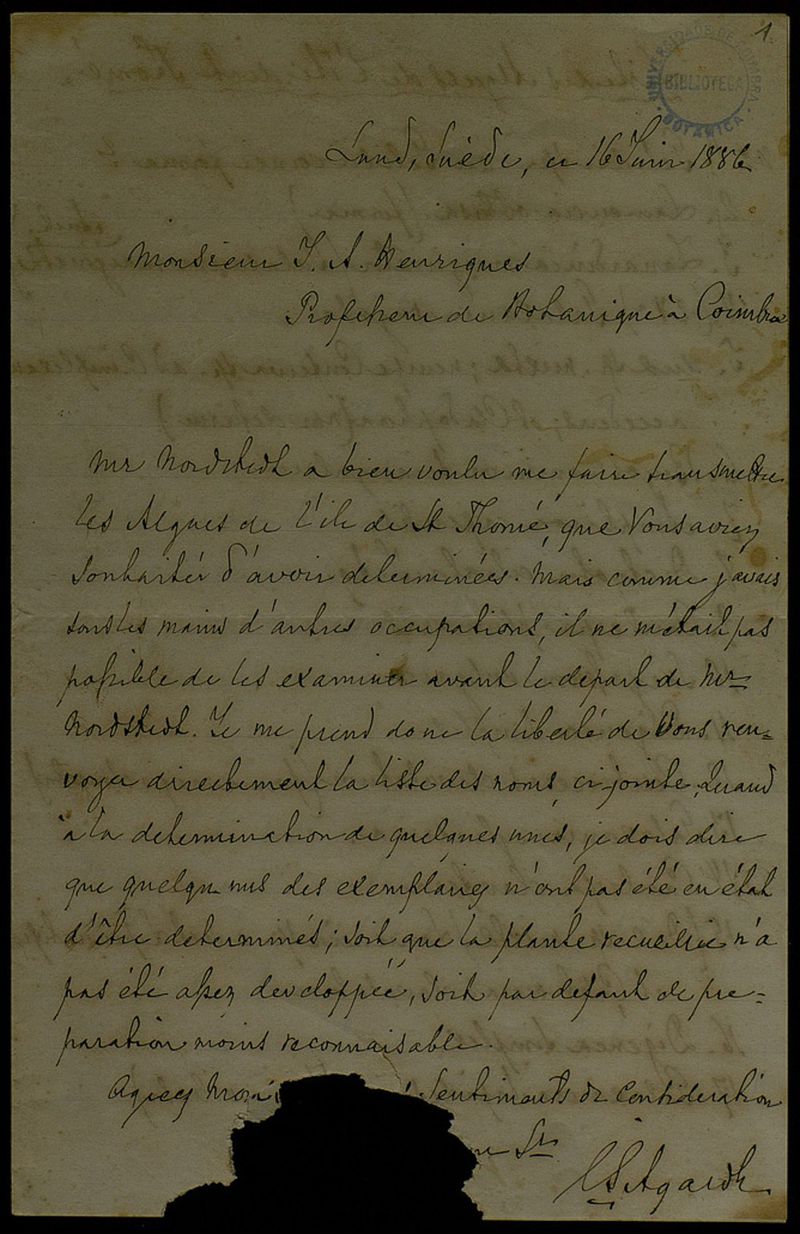 1
UNIVERSIDADE DE COIMBRA
BIBLIOTECA
BOTANICA
Lund, Suède, ce 16 Juin 1886
Monsieur J. A. Henriques
Professeur de Botanique à Coimbra
Mr Nordstedt a bien voulu me faire transmettre
les Algues de l'ile de St Thomé, que Vous aviez
souhaitér d'avoir determinées. Mais comme j'avais
sous les mains d'autres occupations, il ne m'était pas
possible de les examiner avant le départ de Mr
Nordstedt. Je me prend donc la liberté de Vous ren=
voyer directement la liste des noms, ci jointe. Quand
à la determination de quelques unes, je dois dire
que quelqu uns des exemplaires n'ont pas été en état
d'être determinés; soit que la plante recueillie n'a
pas été assez developpée, soit par defaut de pre=
paration moins reconnaisable.
Agreez Monsi sentiments de Consideration
St
J G Agardh